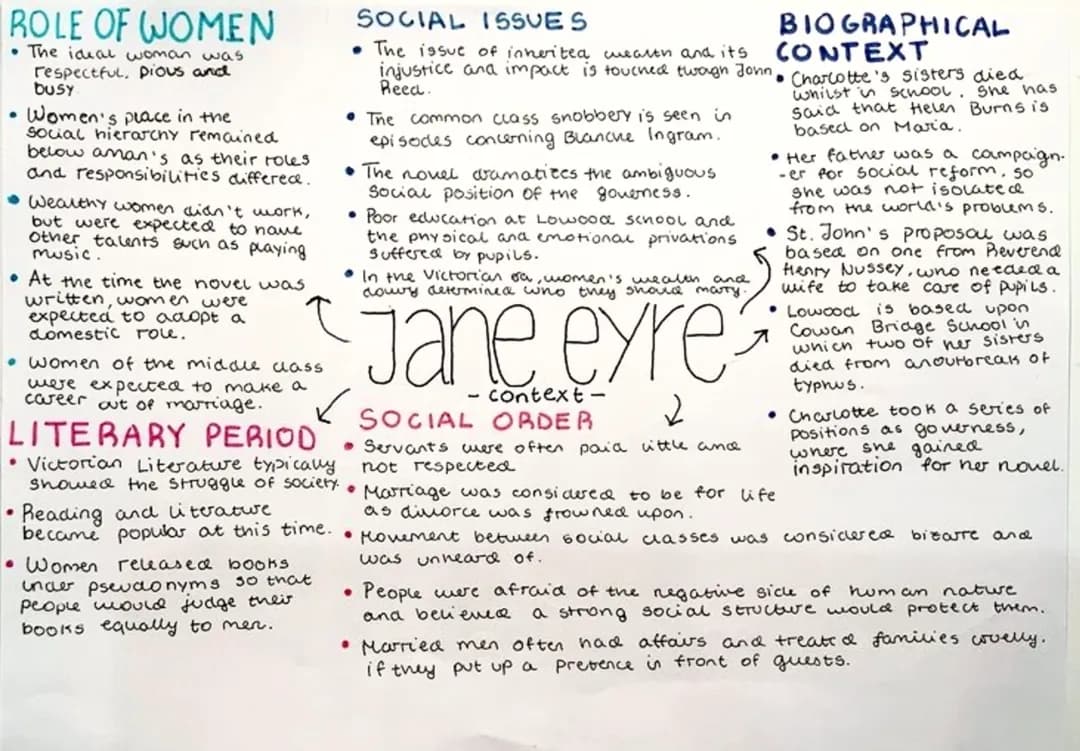 ROLE OF WOMEN
• The ideal woman was
respectful, pious and
busy.
• Women's place in the
social hierarchy remained
below a man's as their roles
and responsibilities differed.
• Wealthy women didn't work,
but were expected to have
other talents such as playing
music.
• At the time the novel was
written, women were
expected to adopt a
domestic role.
• Women of the middle class
were expected to make a
career out of marriage.
SOCIAL ISSUES
• The issue of inherited wealth and its
injustice and impact is touched twogh John
Reed.
• The common class snobbery is seen in
episodes concerning Blanche Ingram.
• The novel dramatizes the ambiguous
social position of the governess.
• Poor education at Lowood school and
the physical and emotional privations
suffered by pupils.
• In the Victorian era, women's wealth and
dowry determined who they should marry.
BIOGRAPHICAL
CONTEXT
• Charlotte's sisters died
whilst in school. She has
said that Helen Burns is
based on Maria.
• Her father was a campaign-
-er for social reform, so
she was not isolated
from the world's problems.
• St. John's proposal was
based on one from Reverend
Henry Nussey, who needed a
wife to take care of pupils.
• Lowood is based upon
Cowan Bridge School in
which two of her sisters
died from an outbreak of
typhus.
• Charlotte took a series of
positions as governess,
where she gained
inspiration for her novel.
Jane eyre
- context -
LITERARY PERIOD
• Victorian Literature typically
showed the struggle of society.
• Reading and literature
became popular at this time.
• Women released books
under pseudonyms so that
people would judge their
books equally to men.
SOCIAL ORDER
• Servants were often paid little and
not respected
• Marriage was considered to be for life
as divorce was frowned upon.
• Movement between social classes was considered bizarre and
was unheard of.
• People were afraid of the negative side of human nature
and believed a strong social structure would protect them.
• Married men often had affairs and treated families cruelly.
if they put up a pretence in front of guests.